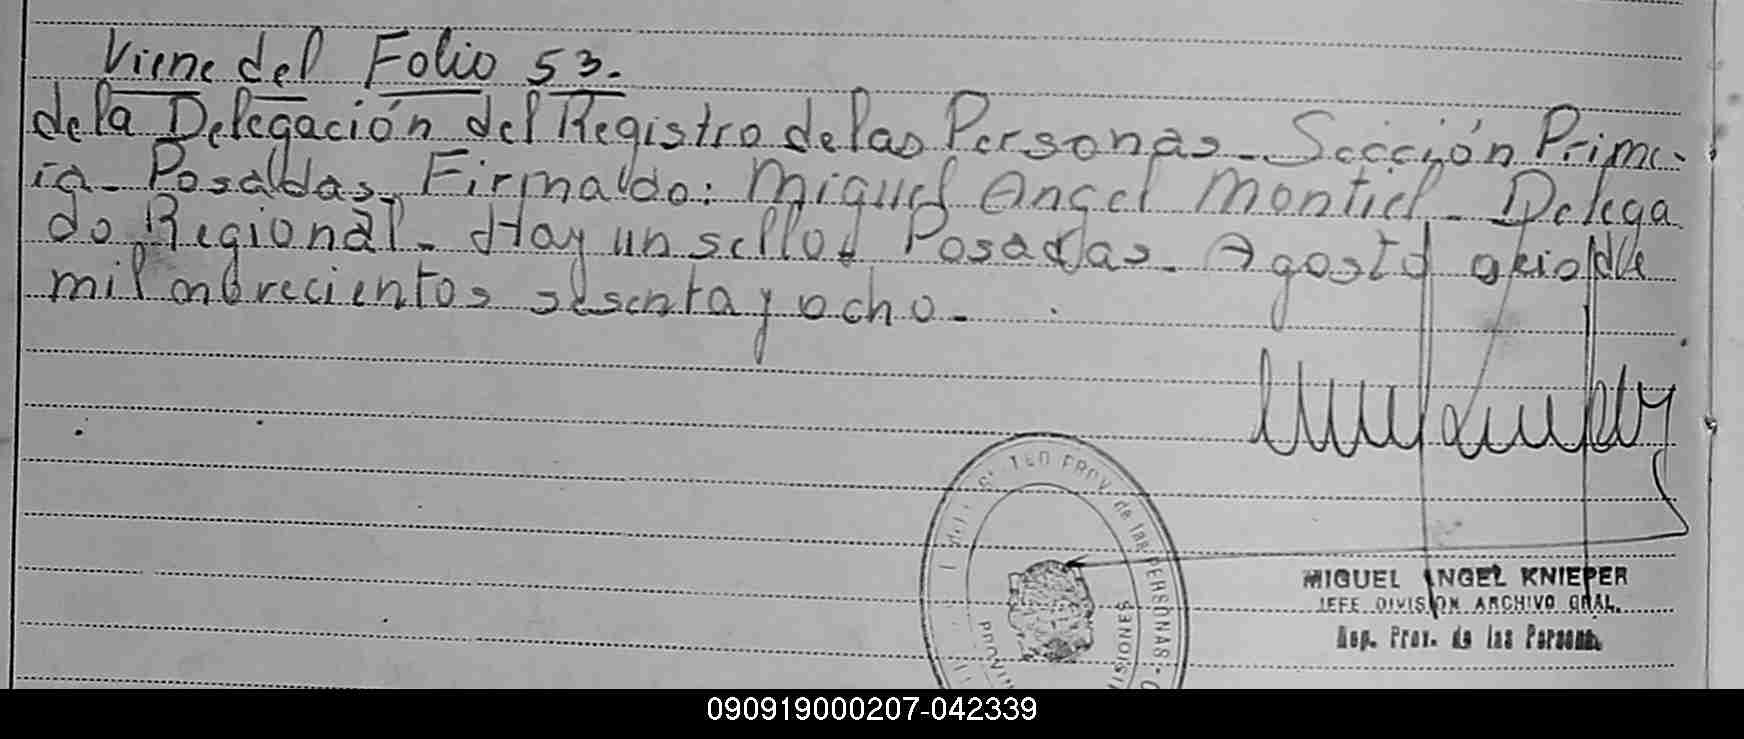 Viene del Folio 53.
de la Delegación del Registro de las Personas - Sección Prime-
ra - Posadas, Firmado: Miguel Angel Montiel - Delega
do Regional - Hay un sello. Posadas - Agosto de
mil novecientos sesenta y ocho -
PROV. de las PERSONAS
MISIONES
MIGUEL ANGEL KNIEPER
JEFE DIVISION ARCHIVO GRAL.
Reg. Prov. de las Personas
090919000207-042339